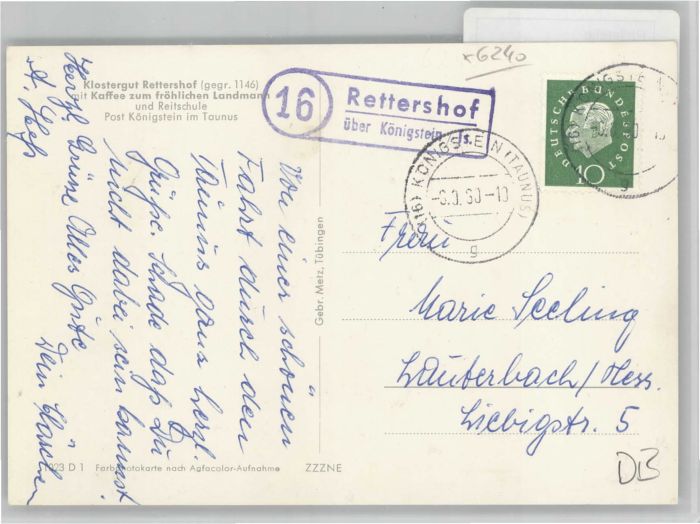 Klostergut Rettershof (gegr. 1146)
mit Kaffee zum fröhlichen Landmann
und Reitschule
Post Königstein im Taunus
x6240
16
Rettershof
über Königstein Ts.
(16) KÖNIGSTEIN (TAUNUS)
-10
g
DEUTSCHE BUNDESPOST
10
g
Von einer schönen
Fahrt durch den
Taunus ganz herzl.
Grüße. Schade daß Du
nicht dabei sein kannst
Herzl. Grüße Alles Gute
Dein
A. Heß
Gebr. Metz, Tübingen
Frau
Marie Seeling
Lauterbach/Hess.
Liebigstr. 5
DB
1023 D 1 Farbfotokarte nach Agfacolor-Aufnahme ZZZNE